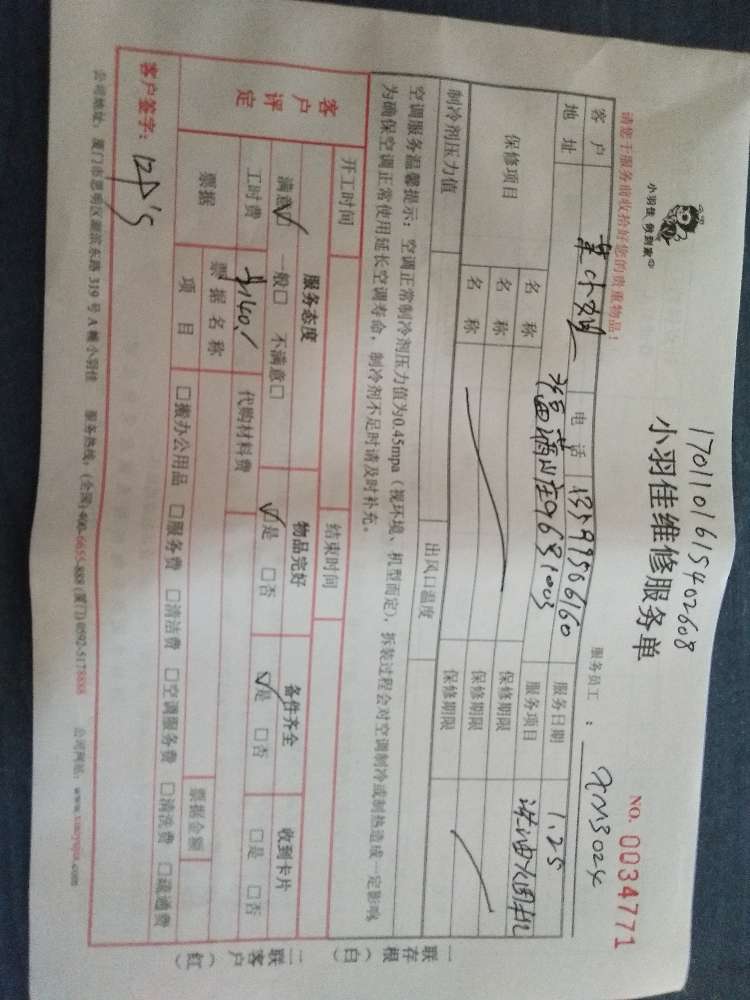 小羽佳 做到家
17011016615402608
小羽佳维修服务单
NO. 0034771
请您于服务前收拾好您的贵重物品！
服务员工： XM3024
客户 小姐 电话 服务日期 1.25
地址 968 1003 服务项目 洗油烟机
保修项目 名称 保修期限
名称 保修期限
制冷剂压力值 名称 出风口温度 保修期限
空调服务温馨提示：空调正常制冷剂压力值为0.45mpa（视环境、机型而定），拆装过程会对空调制冷或制热造成一定影响
为确保空调正常使用延长空调寿命，制冷剂不足时请及时补充。
开工时间 结束时间
客户评定 服务态度 物品完好 备件齐全 收到卡片
满意☑ 一般□ 不满意□ ☑是 □否 ☑是 □否 □是 □否
工时费 ¥140. 代购材料费
票据 票据名称 票据金额
项目 □搬办公用品 □服务费 □清洁费 □空调服务费 □清洗费 □疏通费
客户签字：
公司地址：厦门市思明区湖滨东路319号A幢小羽佳 服务热线：(全国)400-6655-888 (厦门)0592-5178888 公司网站：www.xiaoyujia.com
一联存根（白）
二联客户（红）